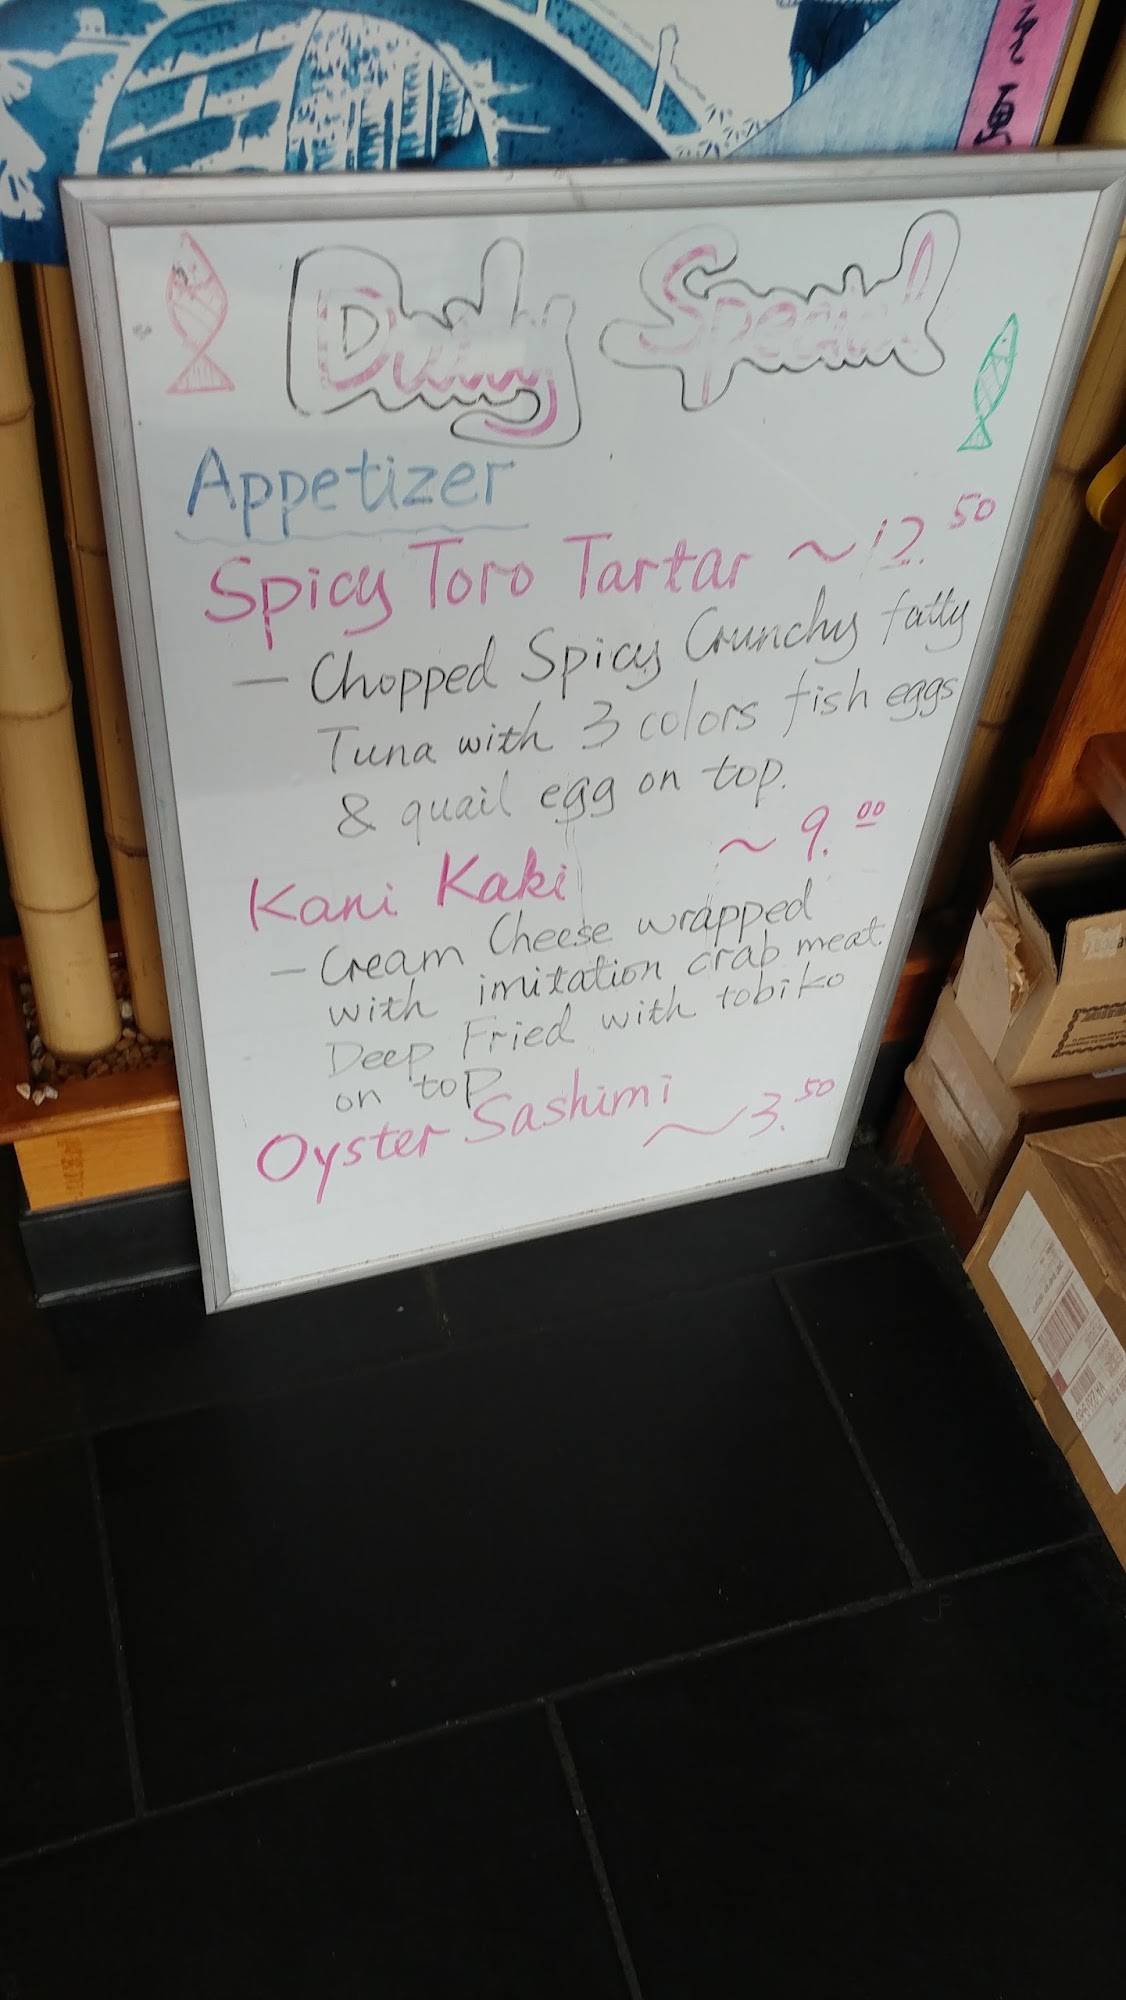 Daily Special
Appetizer
Spicy Toro Tartar ~ 12.50
- Chopped Spicy Crunchy fatty
Tuna with 3 colors fish eggs
& quail egg on top.
Kani Kaki ~ 9.00
- Cream Cheese wrapped
with imitation crab meat.
Deep Fried with tobiko
on top
Oyster Sashimi ~ 3.50